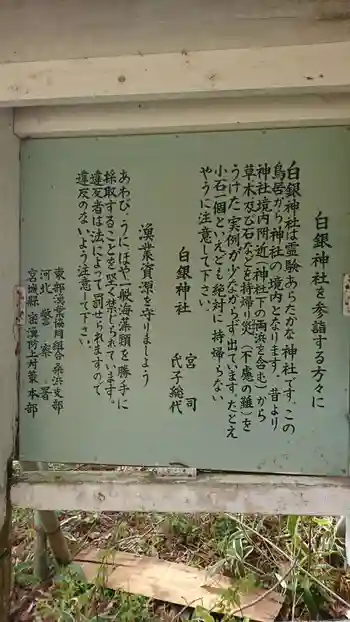 白銀神社を参詣する方々に
白銀神社は霊験あらたかな神社です。この
鳥居から神社の境内となります。昔より
神社境内附近(神社下の両浜を含む)から
草木及び石などを持帰り災(不慮の難)を
うけた実例が少なからず出ています。たとえ
小石一個といえども絶対に持帰らない
ように注意して下さい。
白銀神社
宮司
氏子総代
漁業資源を守りましょう
あわび、うにほや一般海藻類を勝手に
採取することを堅く禁じられています。
違反者は法によって罰せられますので
違反のないよう注意して下さい。
東部漁業協同組合桑浜支部
河北警察署
宮城県密漁防止対策本部